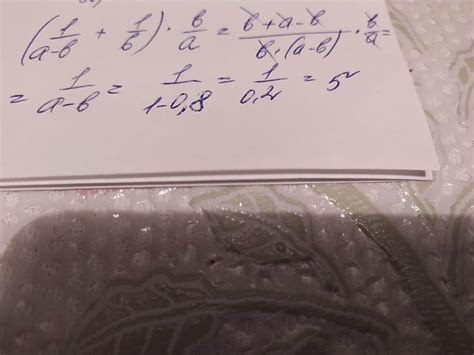 (1/(a-b) + 1/b) · b/a = (b+a-b)/(b·(a-b)) · b/a =
= 1/(a-b) = 1/(1-0,8) = 1/0,2 = 5